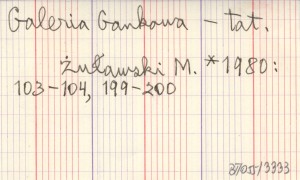 Galeria Gankowa – tat.
Żuławski M. *1980:
103–104, 199–200
3705/3333